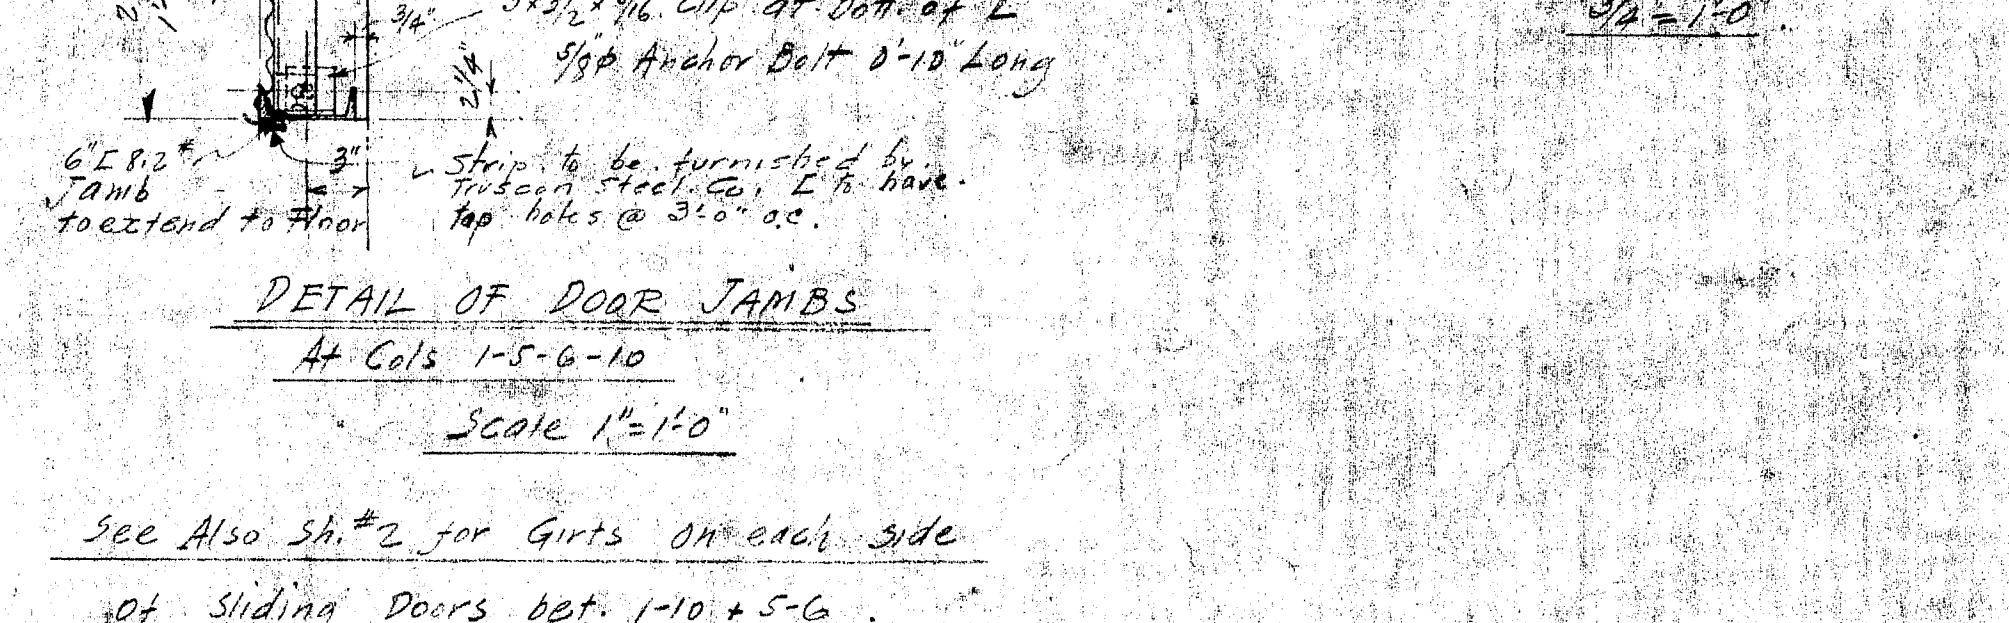 3/4"
Clip at Bott. of L
3/4"=1'-0"
5/8"φ Anchor Bolt 0'-10" Long
2 1/4"
6"[ 8.2#
Jamb
to extend to Floor
3"
Strip to be furnished by
Truscon Steel Co. [ to have
tap holes @ 3'-0" o.c.
DETAIL OF DOOR JAMBS
At Cols 1-5-6-10
Scale 1"=1'-0"
See Also Sh. #2 for Girts on each side
of Sliding Doors bet. 1-10 + 5-6.